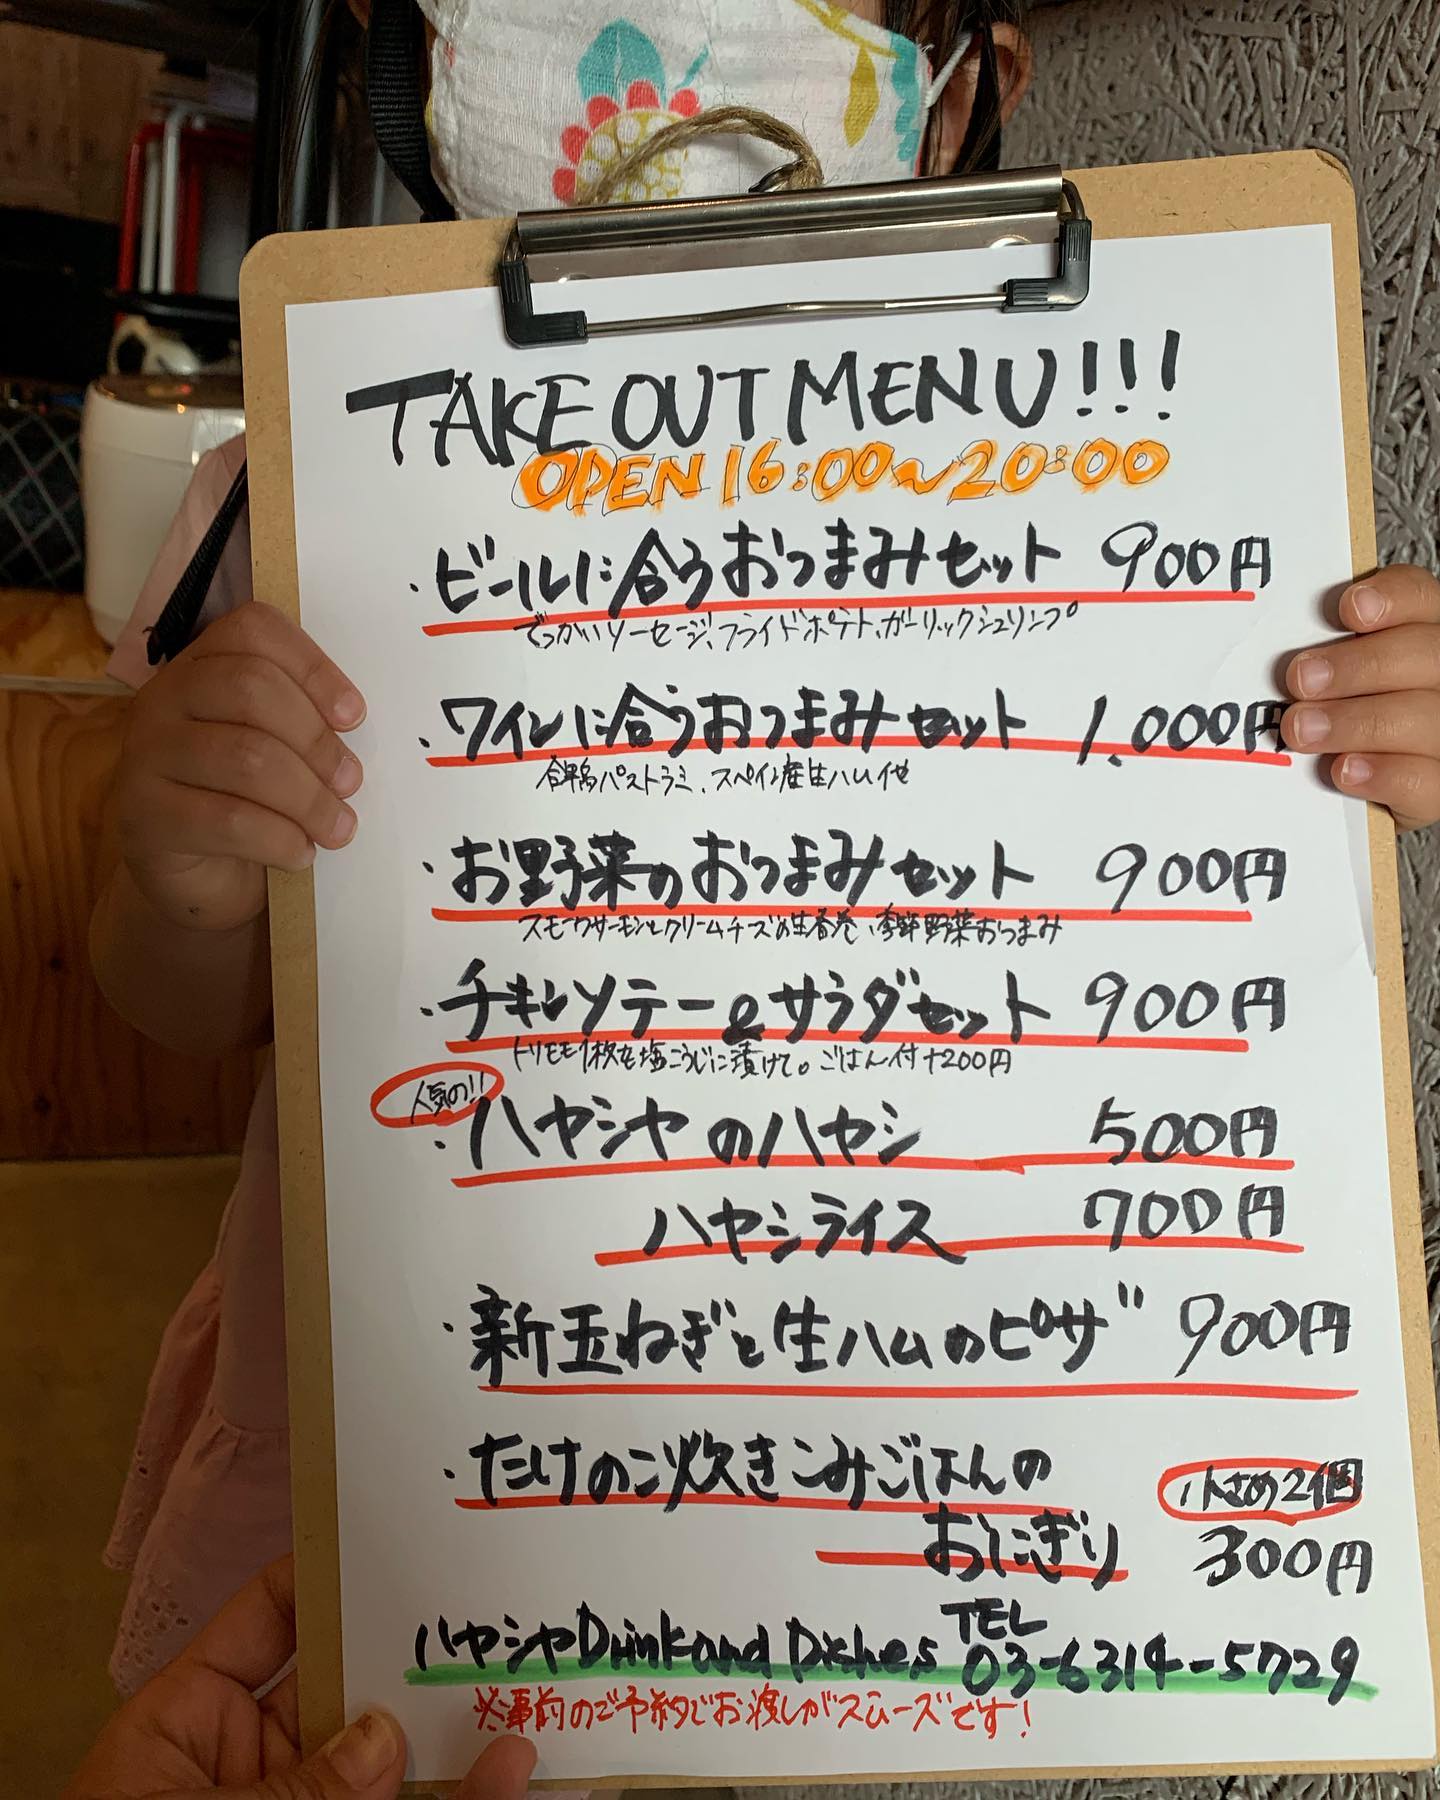 TAKE OUT MENU!!!
OPEN 16:00~20:00
・ビールに合うおつまみセット 900円
でっかいソーセージ、フライドポテト、ガーリックシュリンプ
・ワインに合うおつまみセット 1.000円
合鴨パストラミ、スペイン産生ハム他
・お野菜のおつまみセット 900円
スモークサーモンとクリームチーズの生春巻、季節野菜おつまみ
・チキンソテー&サラダセット 900円
トリモモ1枚を塩こうじに漬けて。ごはん付+200円
人気の!!
・ハヤシヤのハヤシ 500円
ハヤシライス 700円
・新玉ねぎと生ハムのピザ 900円
・たけのこ炊きこみごはんの
小さめ2個
おにぎり 300円
ハヤシヤDrink and Dishes TEL 03-6314-5729
※事前のご予約でお渡しがスムーズです!